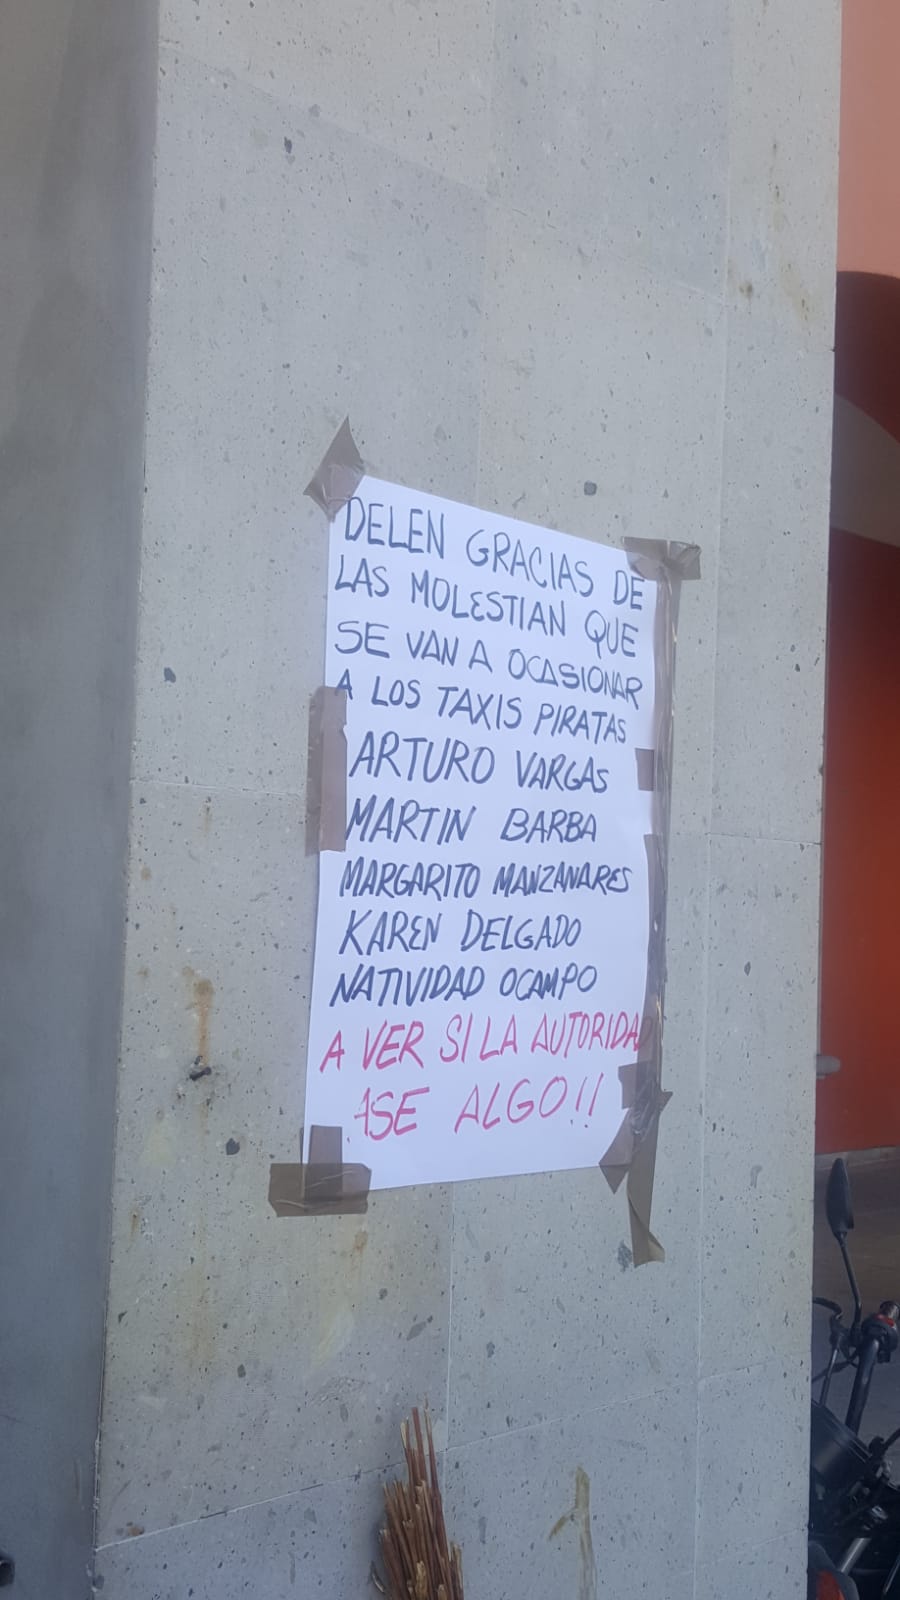 DELEN GRACIAS DE
LAS MOLESTIAN QUE
SE VAN A OCASIONAR
A LOS TAXIS PIRATAS
ARTURO VARGAS
MARTIN BARBA
MARGARITO MANZANARES
KAREN DELGADO
NATIVIDAD OCAMPO
A VER SI LA AUTORIDAD
ASE ALGO!!